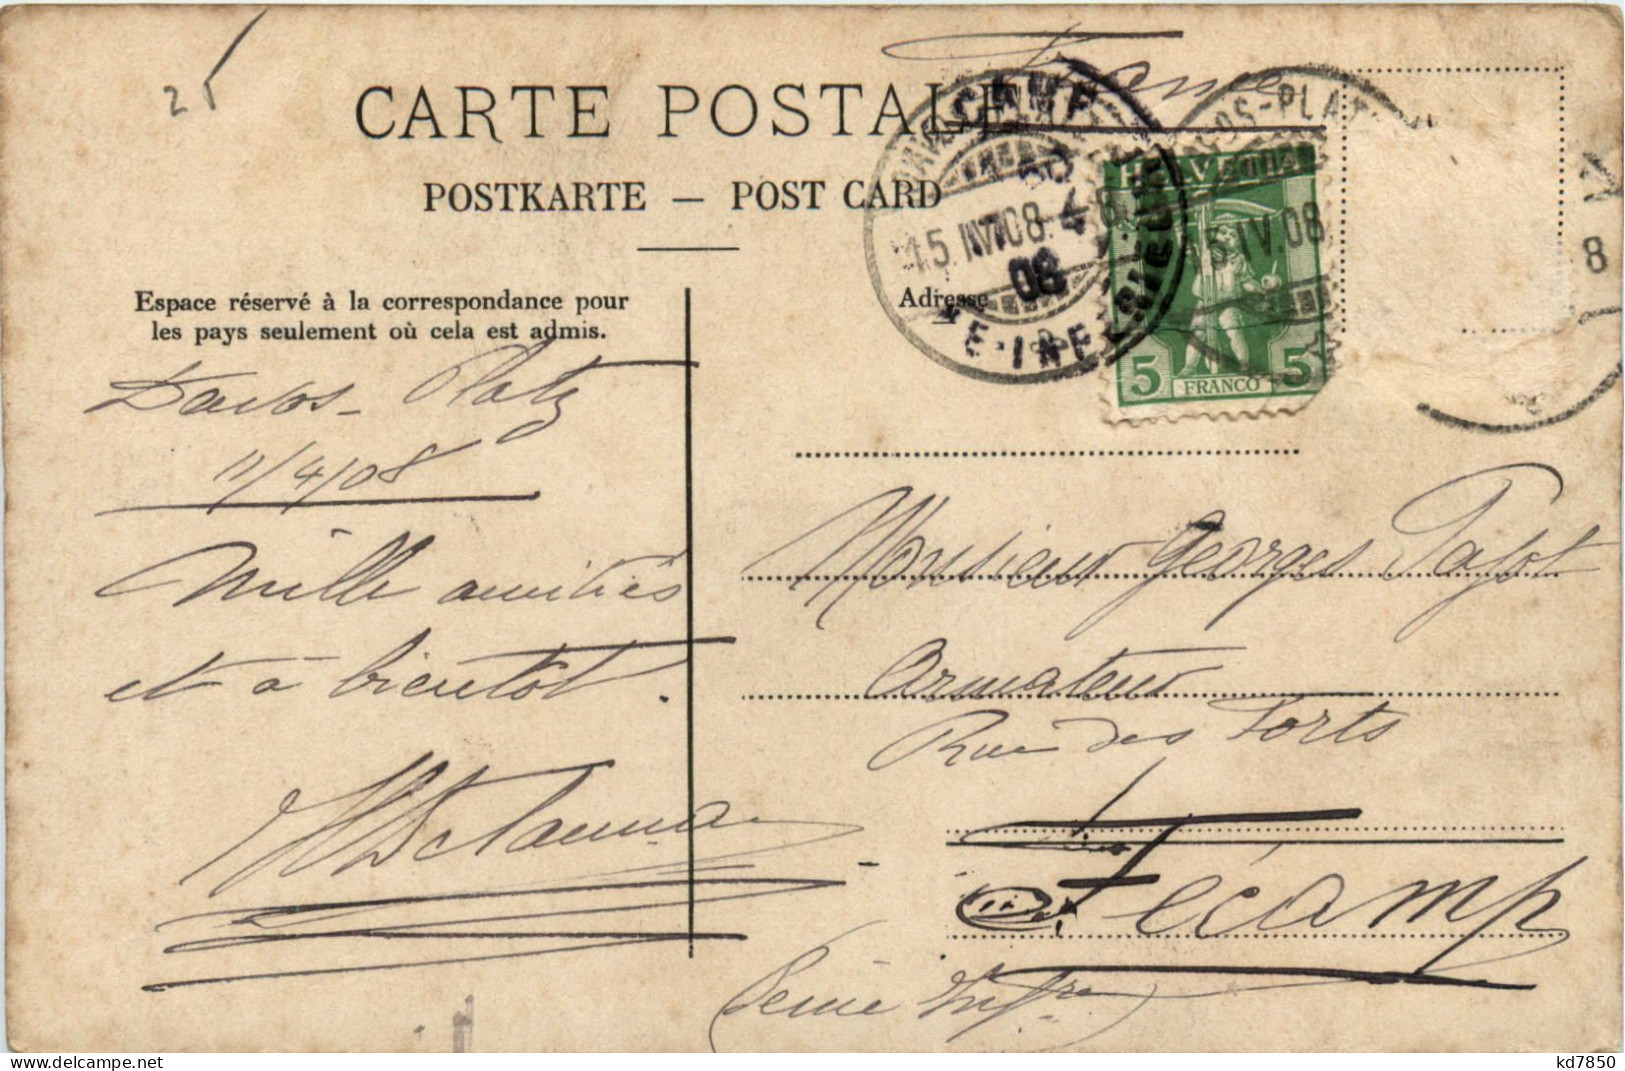 25
France
CARTE POSTALE
POSTKARTE — POST CARD
HELVETIA
5 FRANCO 5
15.IV.08
15.IV.08
8
Espace réservé à la correspondance pour
les pays seulement où cela est admis.
Adresse
Davos-Platz
11/4/08
Mille amitiés
et à bientôt.
Monsieur Georges Pajot
Armateur
Rue des Forts
Fécamp
(Seine Infre)
kd7850